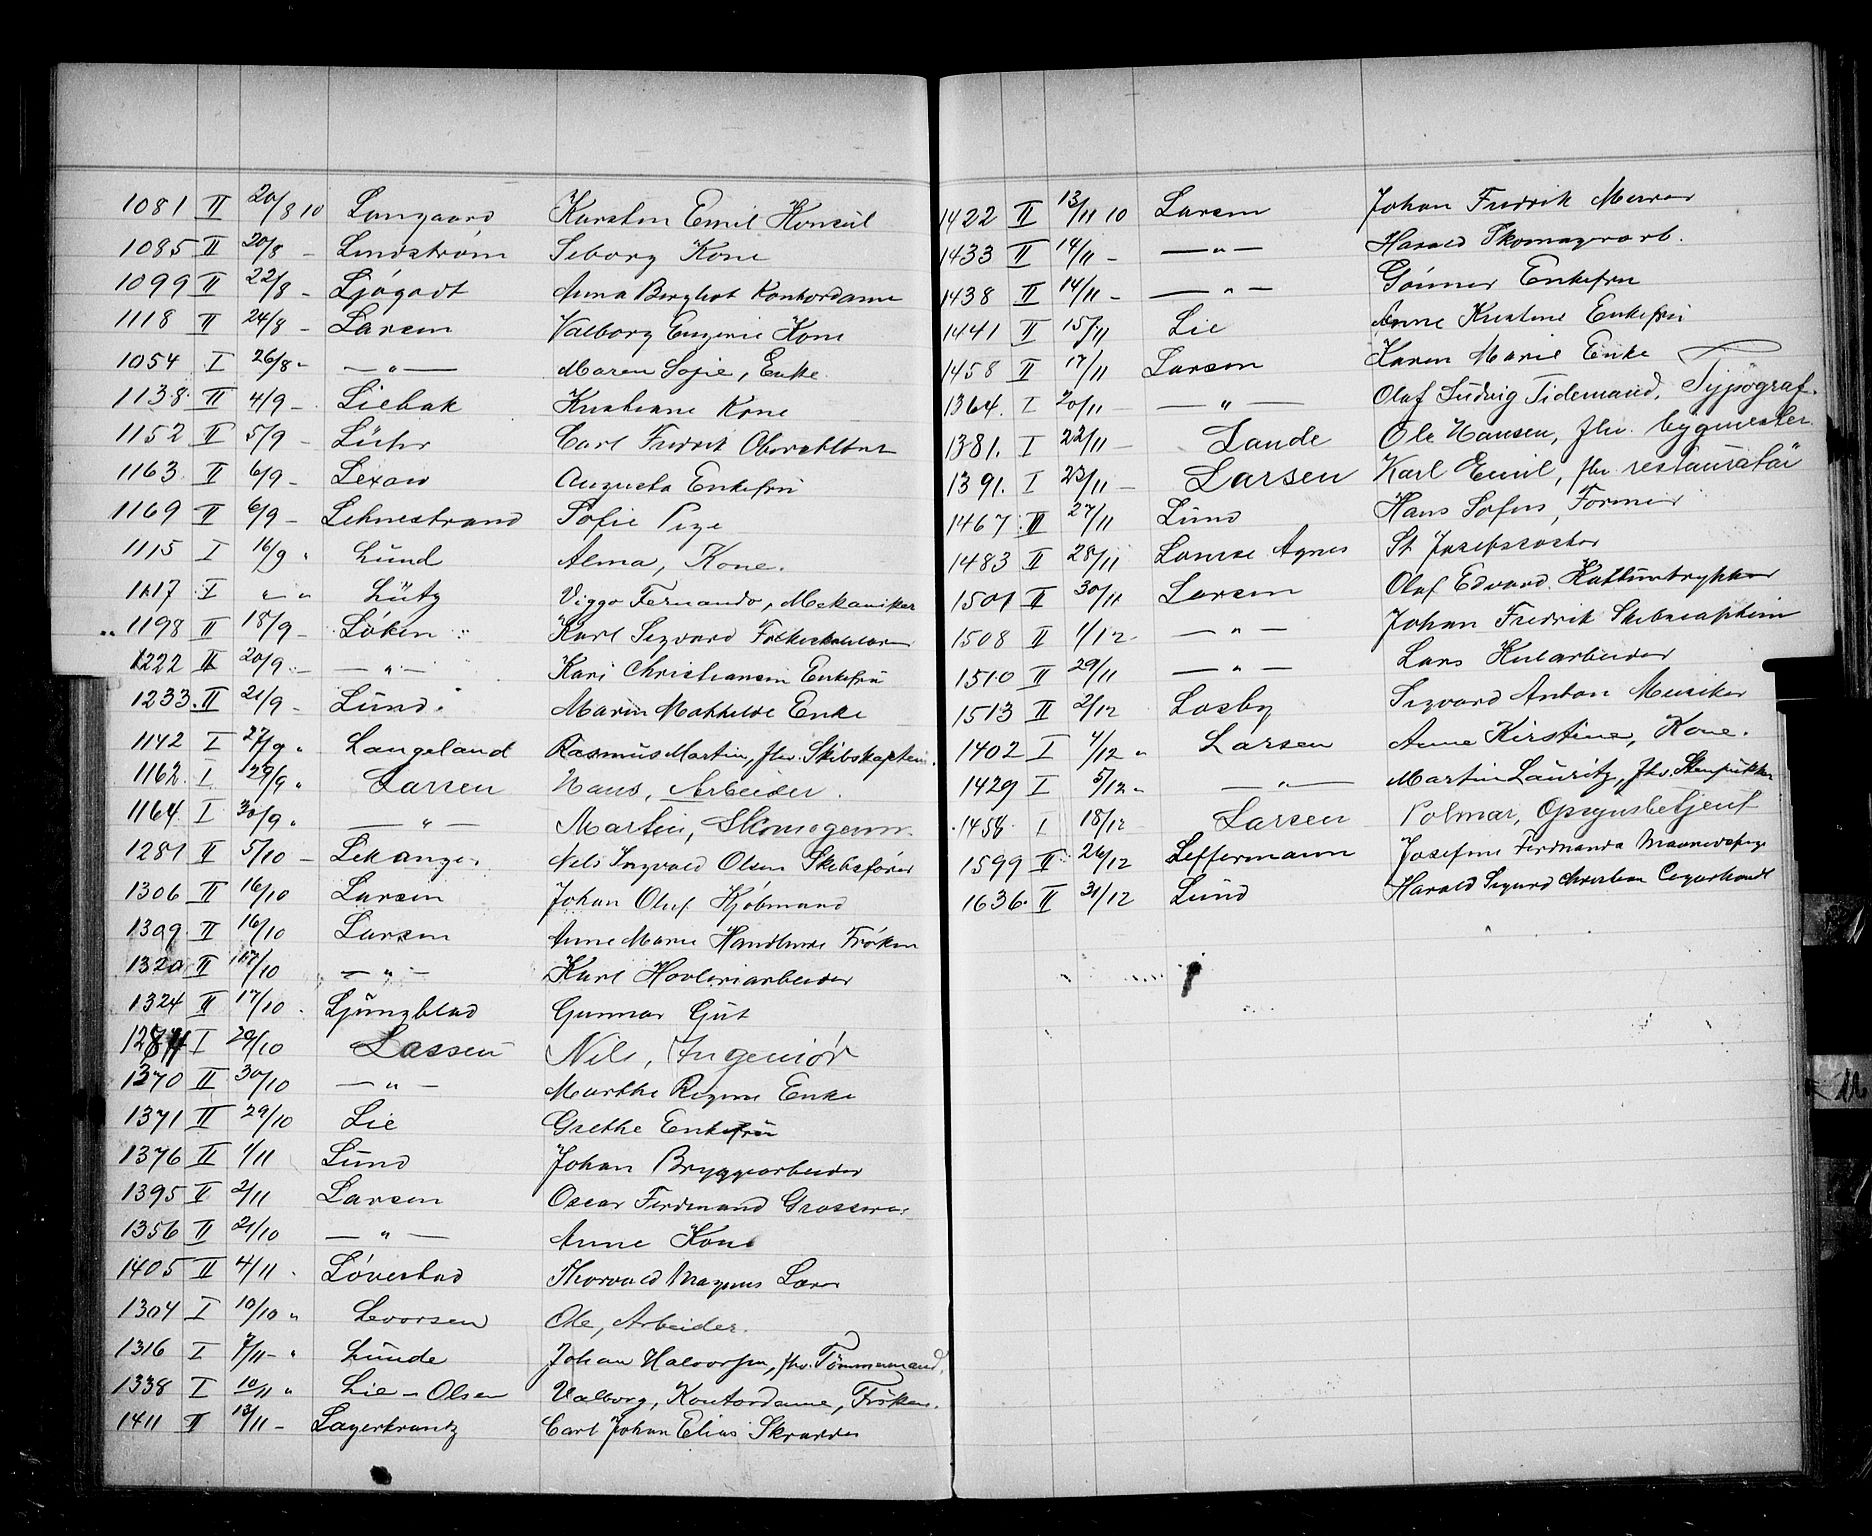 1081 II 20/8 10 Langaard Karsten Emil Konsul
1085 II 20/8 - Lindstrøm Seborg Kone
1099 II 22/8 - Ljøgodt Anna Bergliot Kontordame
1118 II 24/8 - Larsen Valborg Eugenie Kone
1054 I 26/8 - — " — Maren Sofie, Enke
1138 II 4/9 - Liebak Kristiane Kone
1152 II 5/9 - Lühr Carl Fredrik
1163 II 6/9 - Lexow Augusta Enkefru
1169 II 6/9 - Lehnestrand Sofie Pige
1115 I 16/9 " Lund Alma, Kone.
1117 I " " Lütz Viggo Fernando, Mekaniker
1198 II 18/9 - Løken Karl Sigvard
1222 II 20/9 - — " — Kari Christiansen Enkefru
1233 II 21/9 - Lund Maren Mathilde Enke
1142 I 27/9 " Langeland Rasmus Martin, fhv. Skibskaptein.
1162 I 29/9 " Larsen Hans, Arbeider.
1164 I 30/9 " — " — Martin, Skomagersv.
1281 II 5/10 - Lekange Nels Ingvald Olsen Skibsfører
1306 II 16/10 Larsen Johan Oluf Kjøbmand
1309 II 16/10 Larsen Anne Marie Handlende Frøken
1320 II 17/10 — " — Karl Høvleriarbeider
1324 II 17/10 - Ljungblad Gunnar Gut
1284 I 20/10 Lassen Nils, Ingeniør
1370 II 30/10 — " — Marthe Regine Enke
1371 II 29/10 Lie Grethe Enkefru
1376 II 1/11 Lund Johan Bryggearbeider
1395 II 2/11 Larsen Oscar Ferdinand Grosserer
1356 II 21/10 — " — Anne Kone
1405 II 4/11 - Løvestad Thorvald Magnus
1304 I 10/10 " Levorsen Ole, Arbeider.
1316 I 7/11 - " Lunde Johan Halvorsen, fhv. Tømmermand.
1338 I 10/11 " Lie - Olsen Valborg, Kontordame, Frøken.
1411 II 13/11 - Lagerkrantz Carl Johan Elias Skrædder
1422 II 13/11 10 Larsen Johan Fredrik Murer
1433 II 14/11 - — " — Harald Skomagerarb.
1438 II 14/11 - — " — Gunner Enkefru
1441 II 15/11 Lie Anne Kristine Enkefru
1458 II 17/11 Larsen Karen Marie Enke
1364. I 20/11 — — " — Olaf Ludvig Tidemand, Typograf.
1381. I 22/11 — Lande Ole Hansen, fhv. bygmester.
1391. I 23/11 — Larsen Karl Emil, fhv restauratør
1467 II 27/11 Lund Hans Sofus, Former
1483 II 28/11 Louise Agnes St Josefsøster
1501 II 30/11 Larsen Olaf Edvard. Kattuntrykker
1508 II 1/12 - — " — Johan Fredrik Skibscaptein
1510 II 29/11 — " — Lars Kularbeider
1513 II 2/12 Losby Sigvard Anton Musiker
1402 I 4/12 " Larsen Anne Kirstine, Kone.
1429 I 5/12 " — " — Martin Lauritz, fhv. Stenpukker
1458 I 18/12 Larsen Polmar, Opsynsbetjent
1599 II 26/12 Leffermann Josefine Ferdinanda
1636 II 31/12 Lund Harald Sigurd Christian Cigarhandl